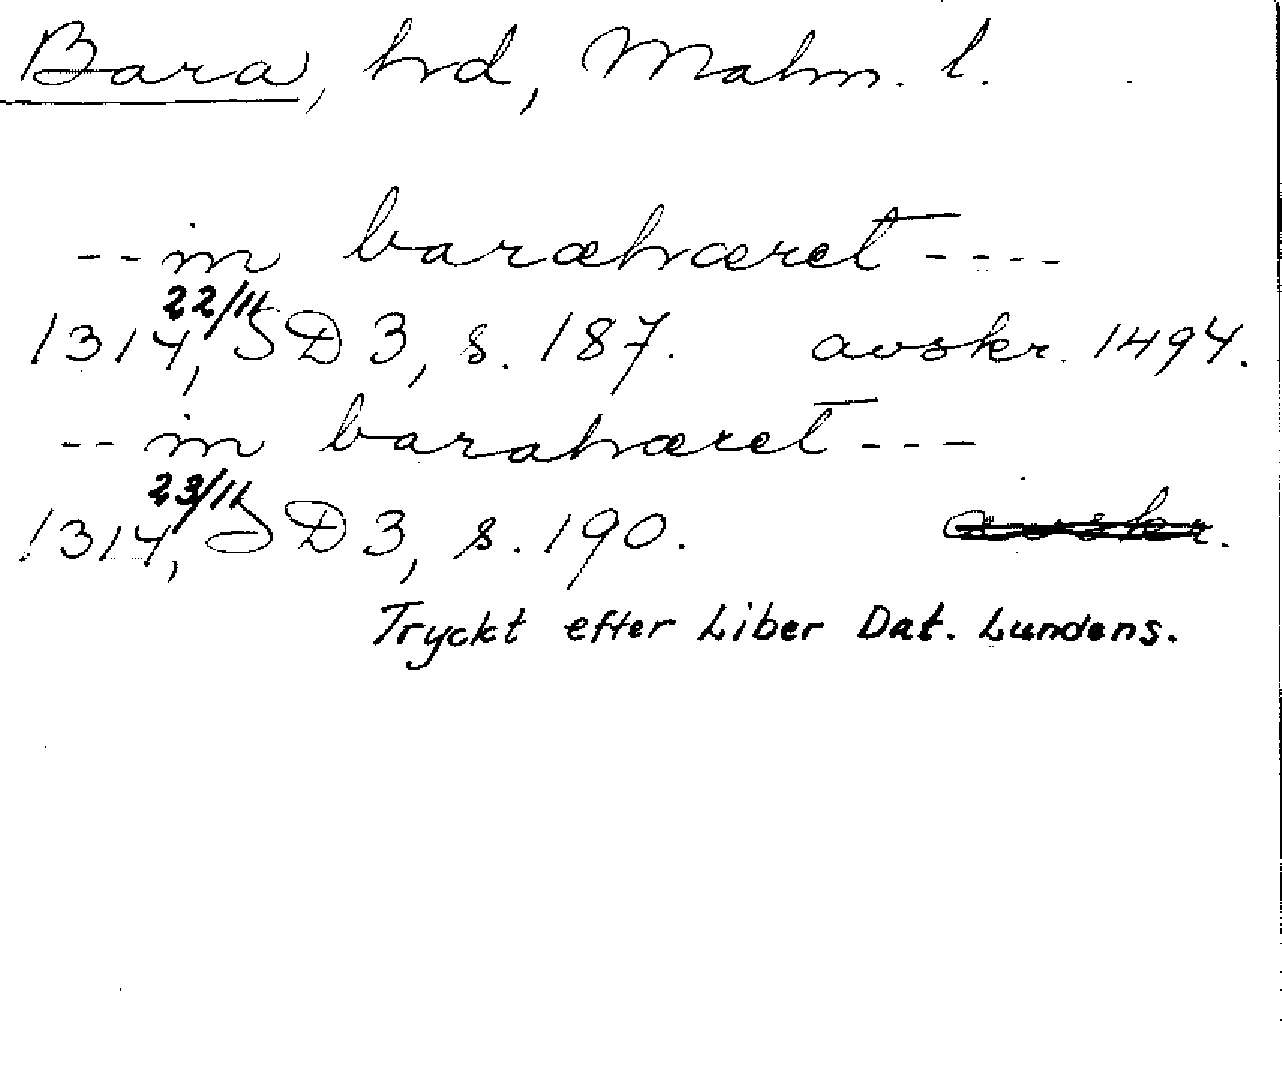 Bara, hrd, Malm. l.
-- in baræhæret ----
1314 22/11, SD 3, s. 187. avskr. 1494.
-- in barahæret ---
1314 23/11, SD 3, s. 190. avskr.
Tryckt efter Liber Dat. Lundens.